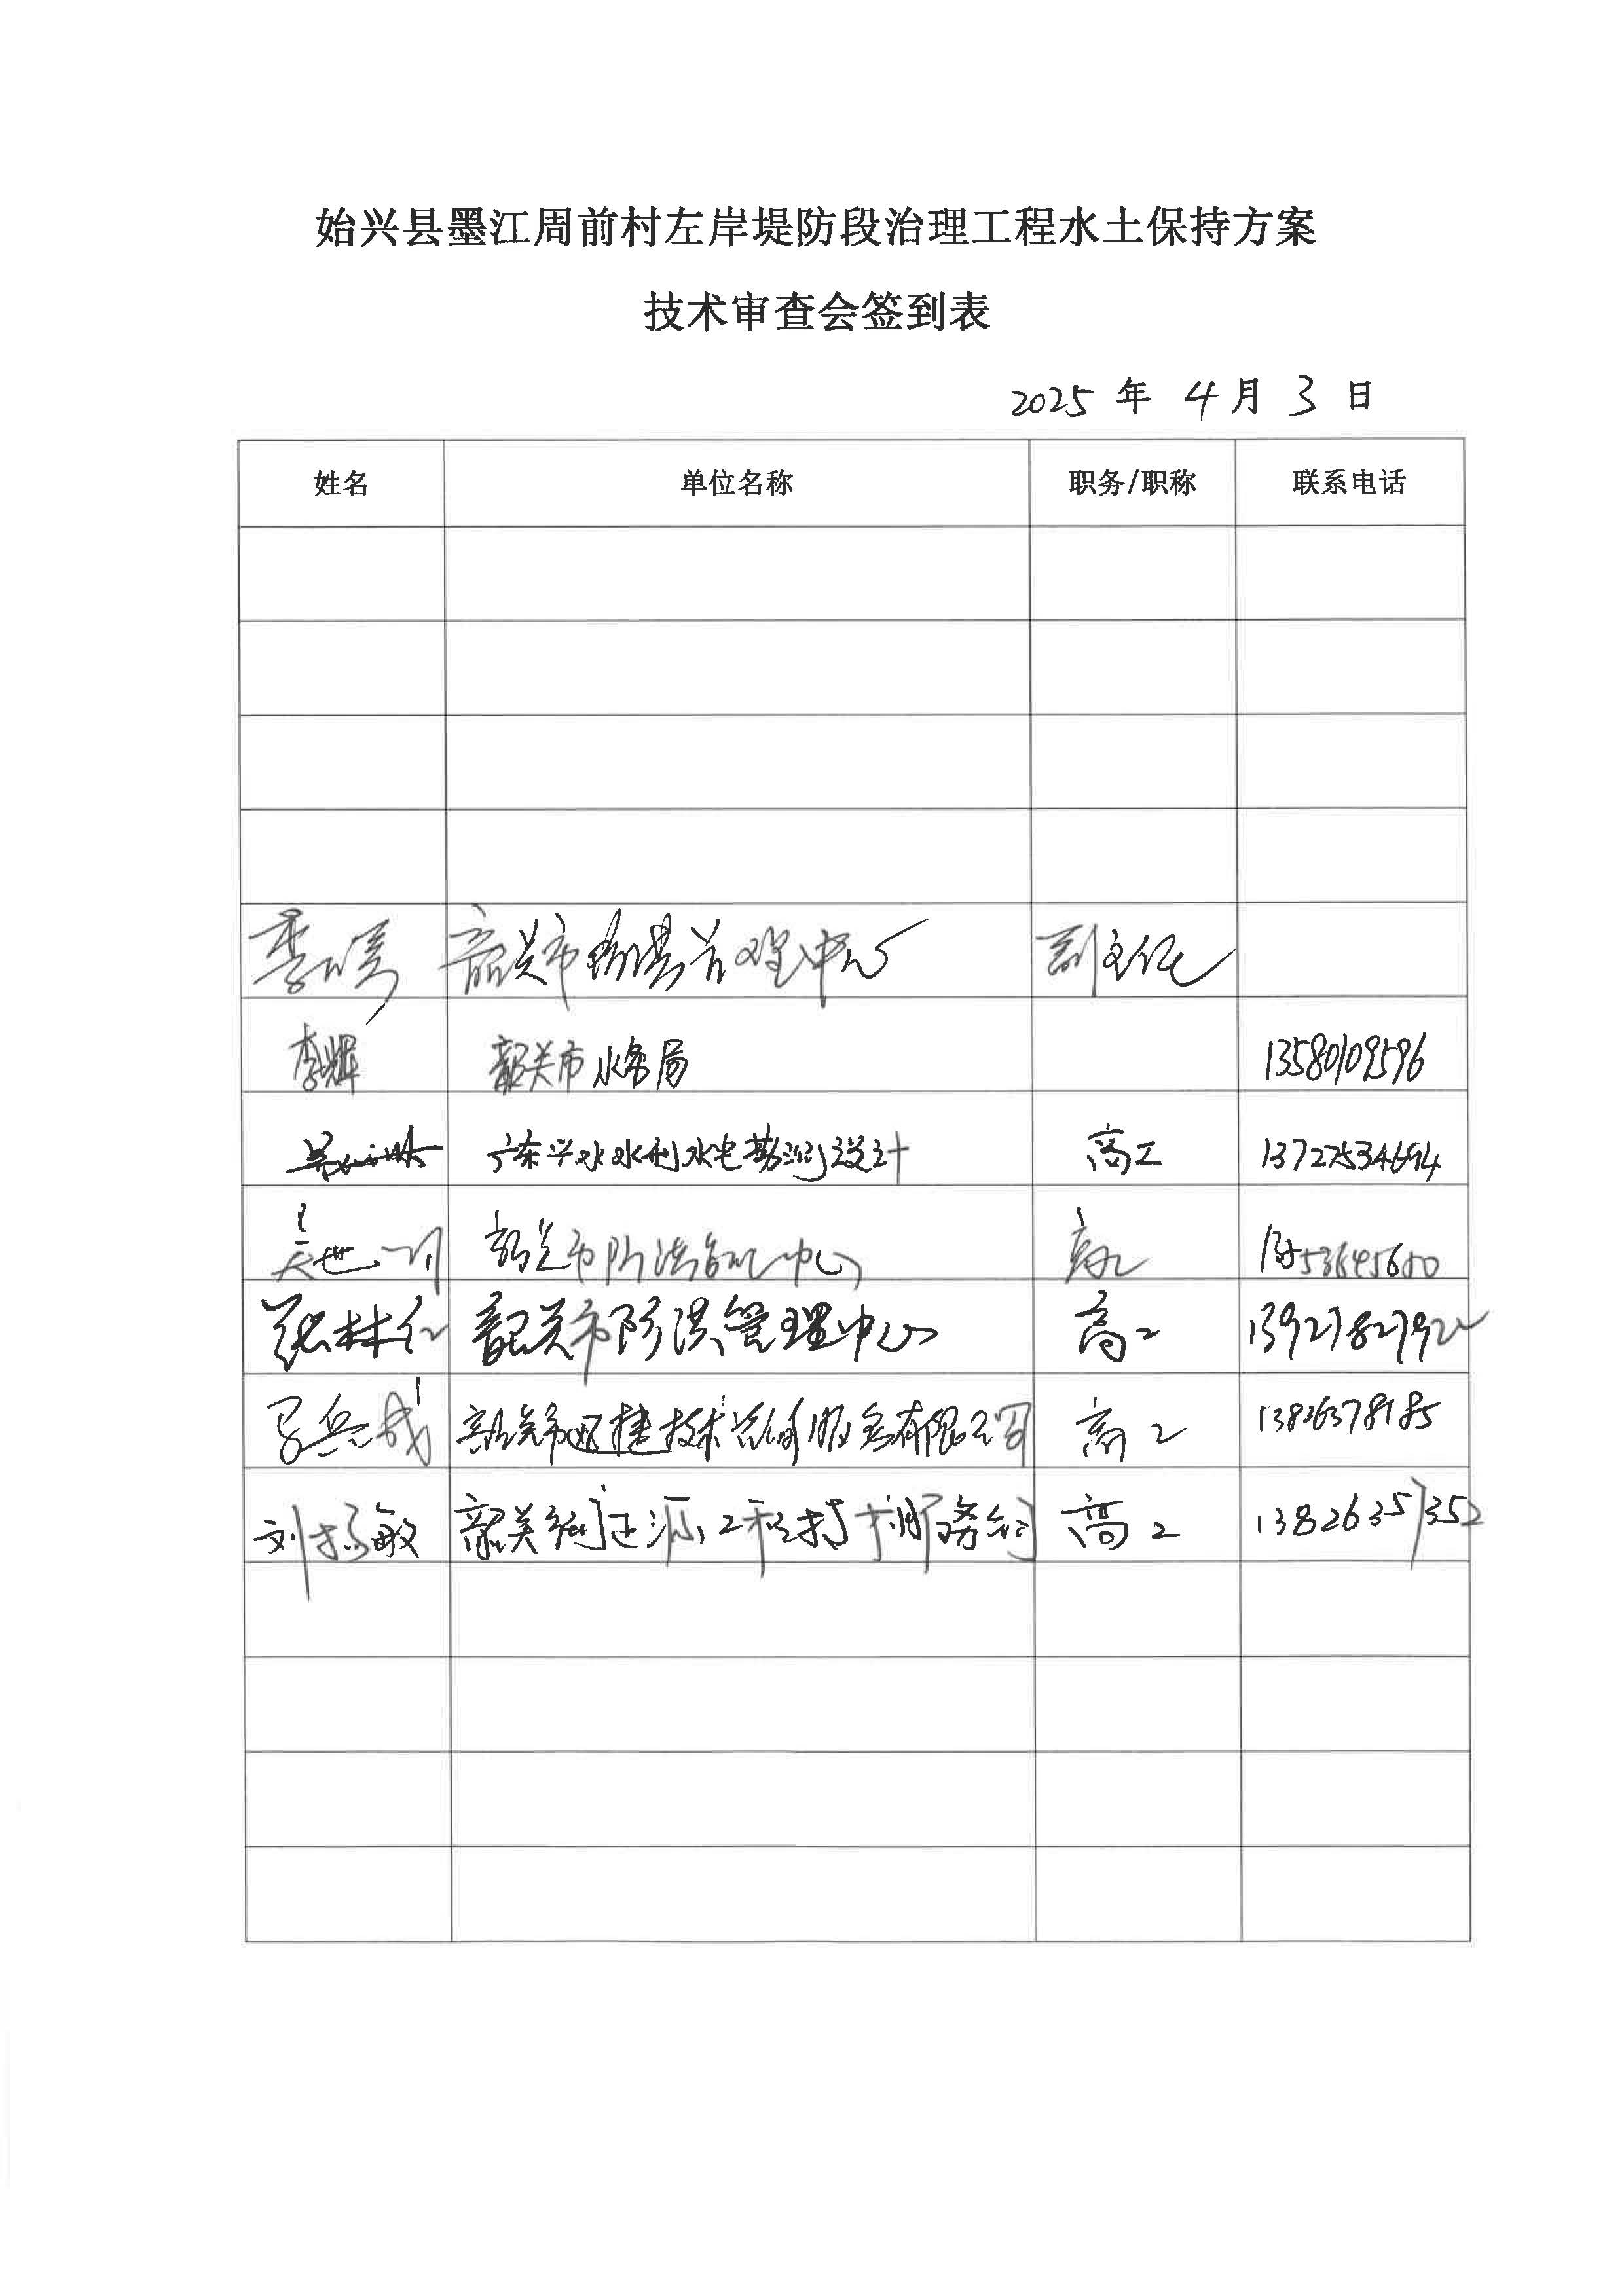 始兴县墨江周前村左岸堤防段治理工程水土保持方案
技术审查会签到表
2025 年 4 月 3 日
姓名 单位名称 职务/职称 联系电话
韶关市防洪管理中心 副主任
李辉 韶关市水务局 13580109596
广东兴水水利水电勘测设计 高工 13727534694
韶关市防洪管理中心 高工
张林仁 韶关市防洪管理中心 高工 13927827922
韶关市迅捷技术咨询服务有限公司 高工 13826378185
刘扬敏 韶关 正源工程技术服务 高工 13826357352